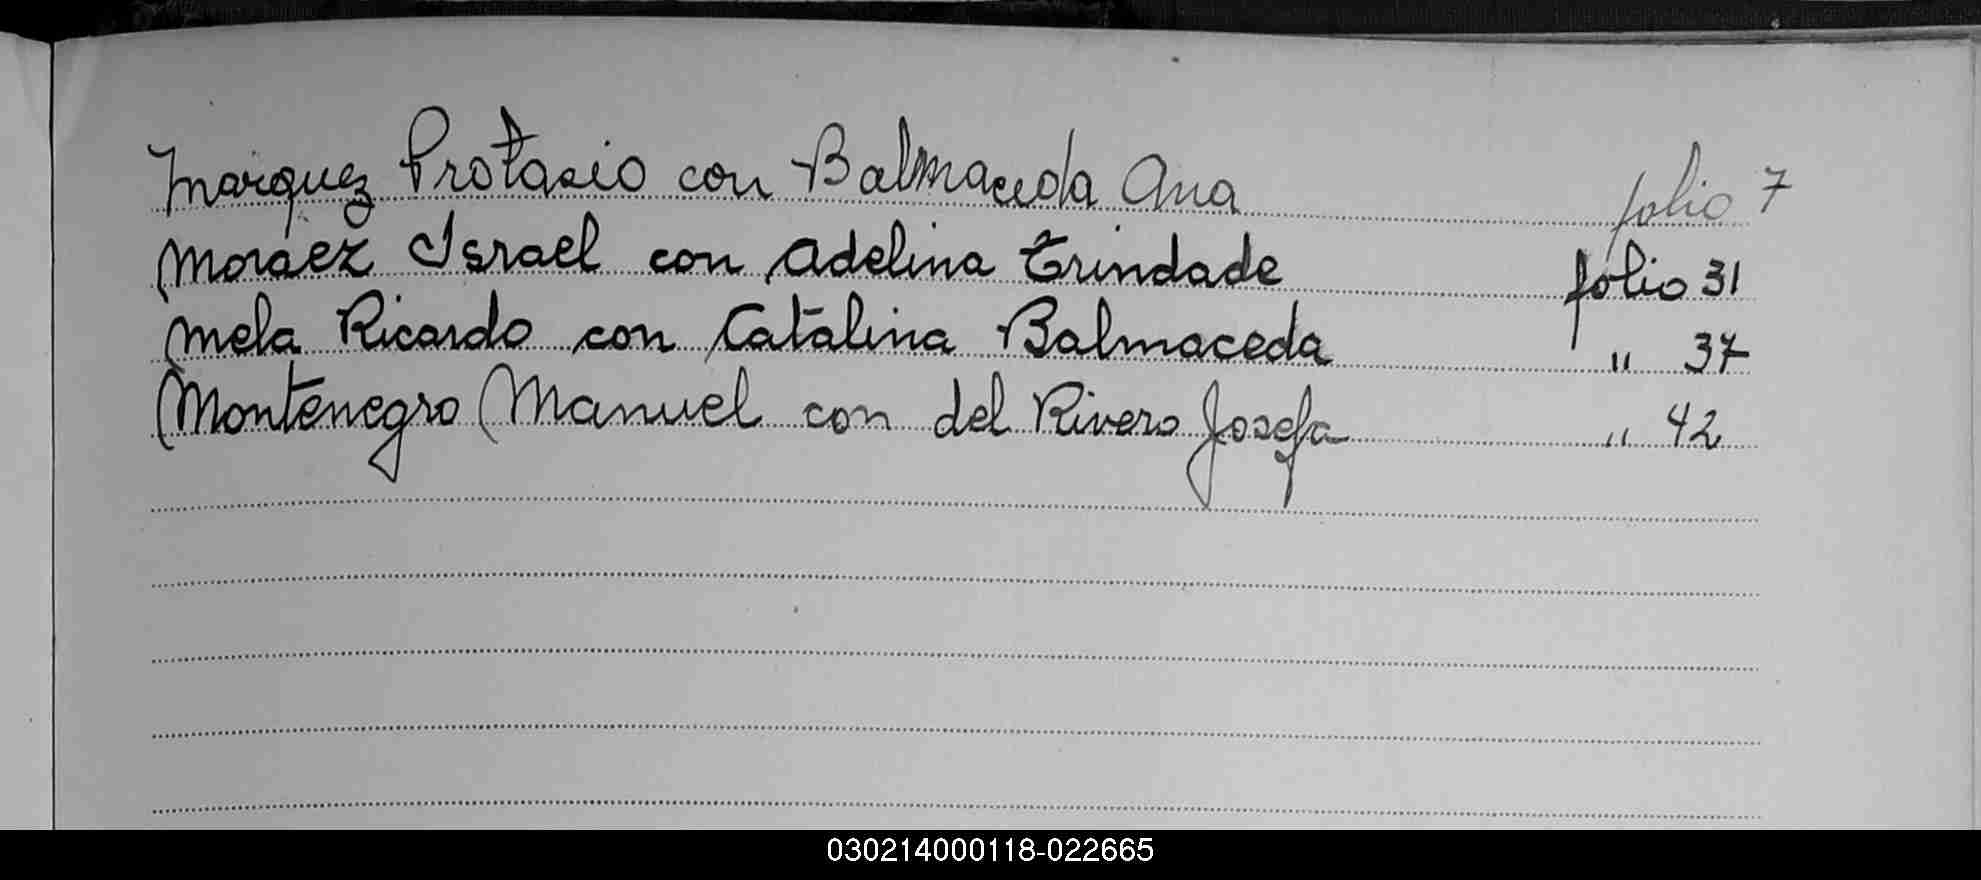 Marquez Protasio con Balmaceda Ana folio 7
Moraez Israel con Adelina Trindade folio 31
Mela Ricardo con Catalina Balmaceda " 37
Montenegro Manuel con del Rivero Josefa " 42
030214000118-022665